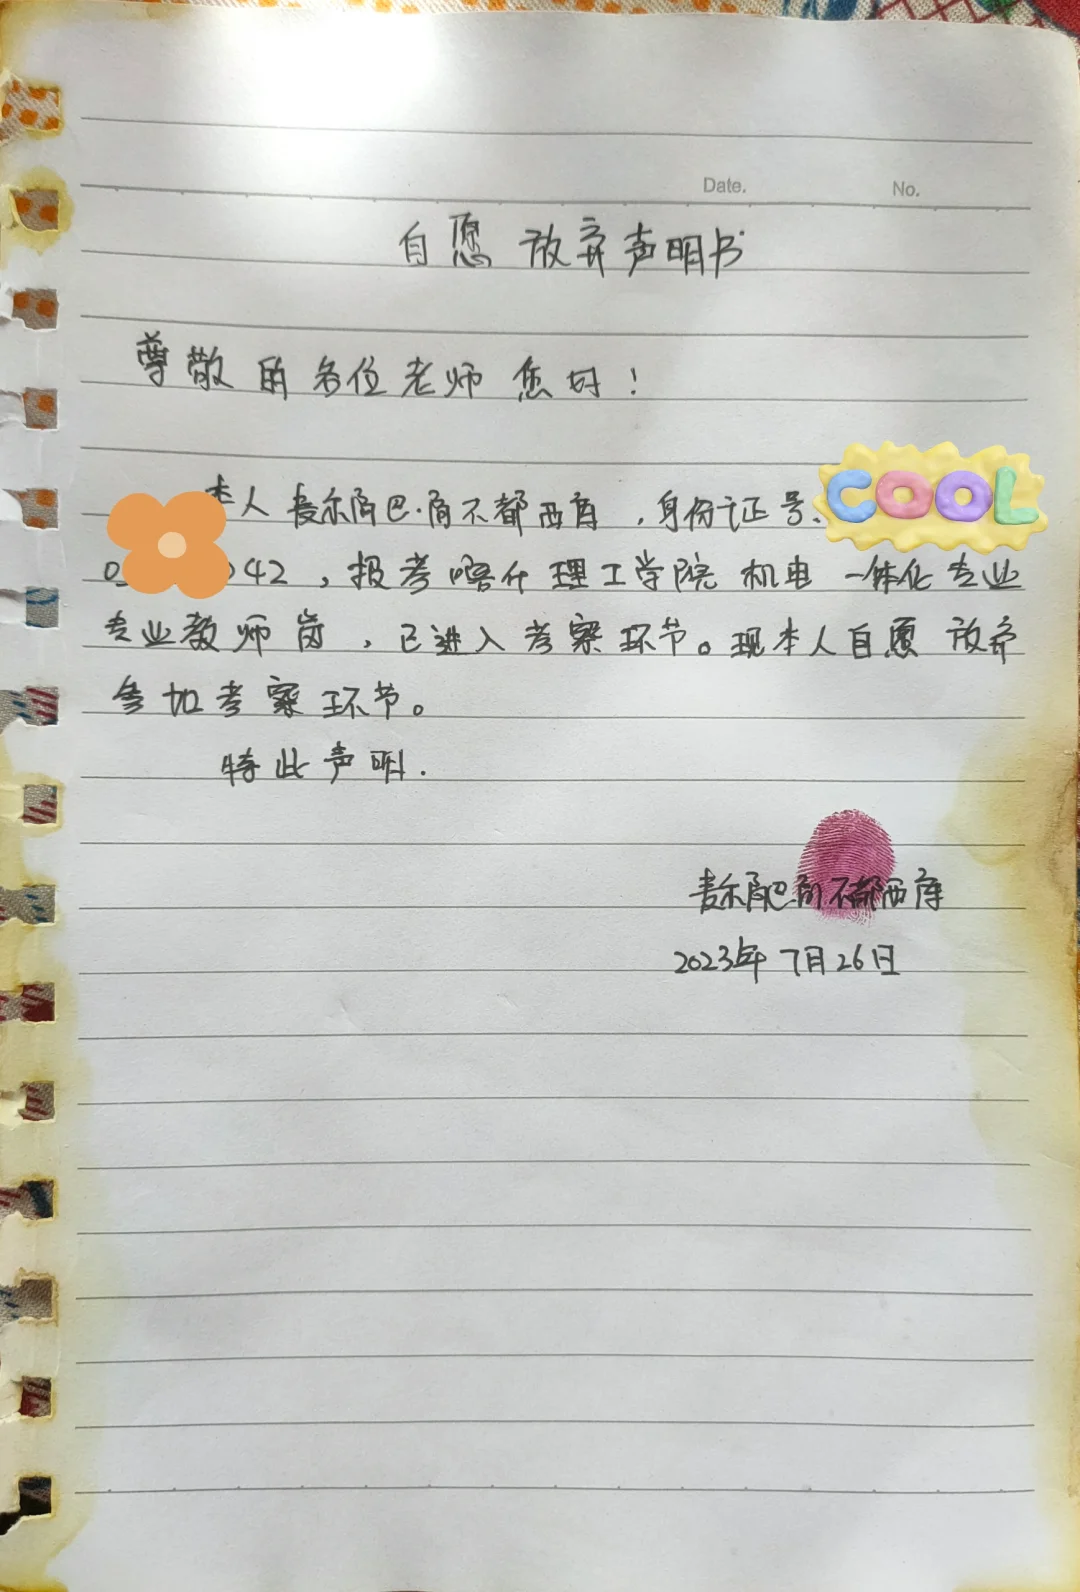 Date.
No.
自愿放弃声明书
尊敬的各位老师您好！
本人麦尔角巴·角不都西库，身份证号、COOL
042，报考喀什理工学院机电一体化专业
专业教师岗，已进入考察环节。现本人自愿放弃
参加考察环节。
特此声明.
麦尔角巴·角不都西库
2023年7月26日